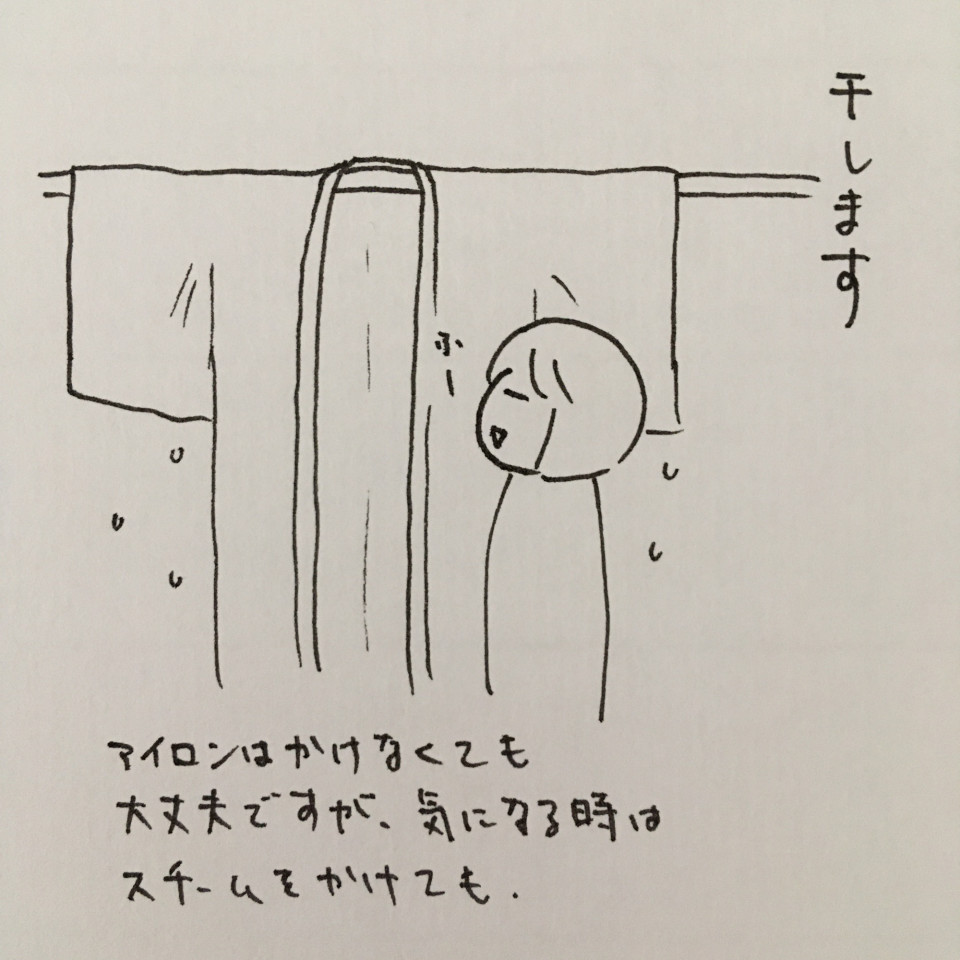 干します
ふー
アイロンはかけなくても
大丈夫ですが、気になる時は
スチームをかけても.